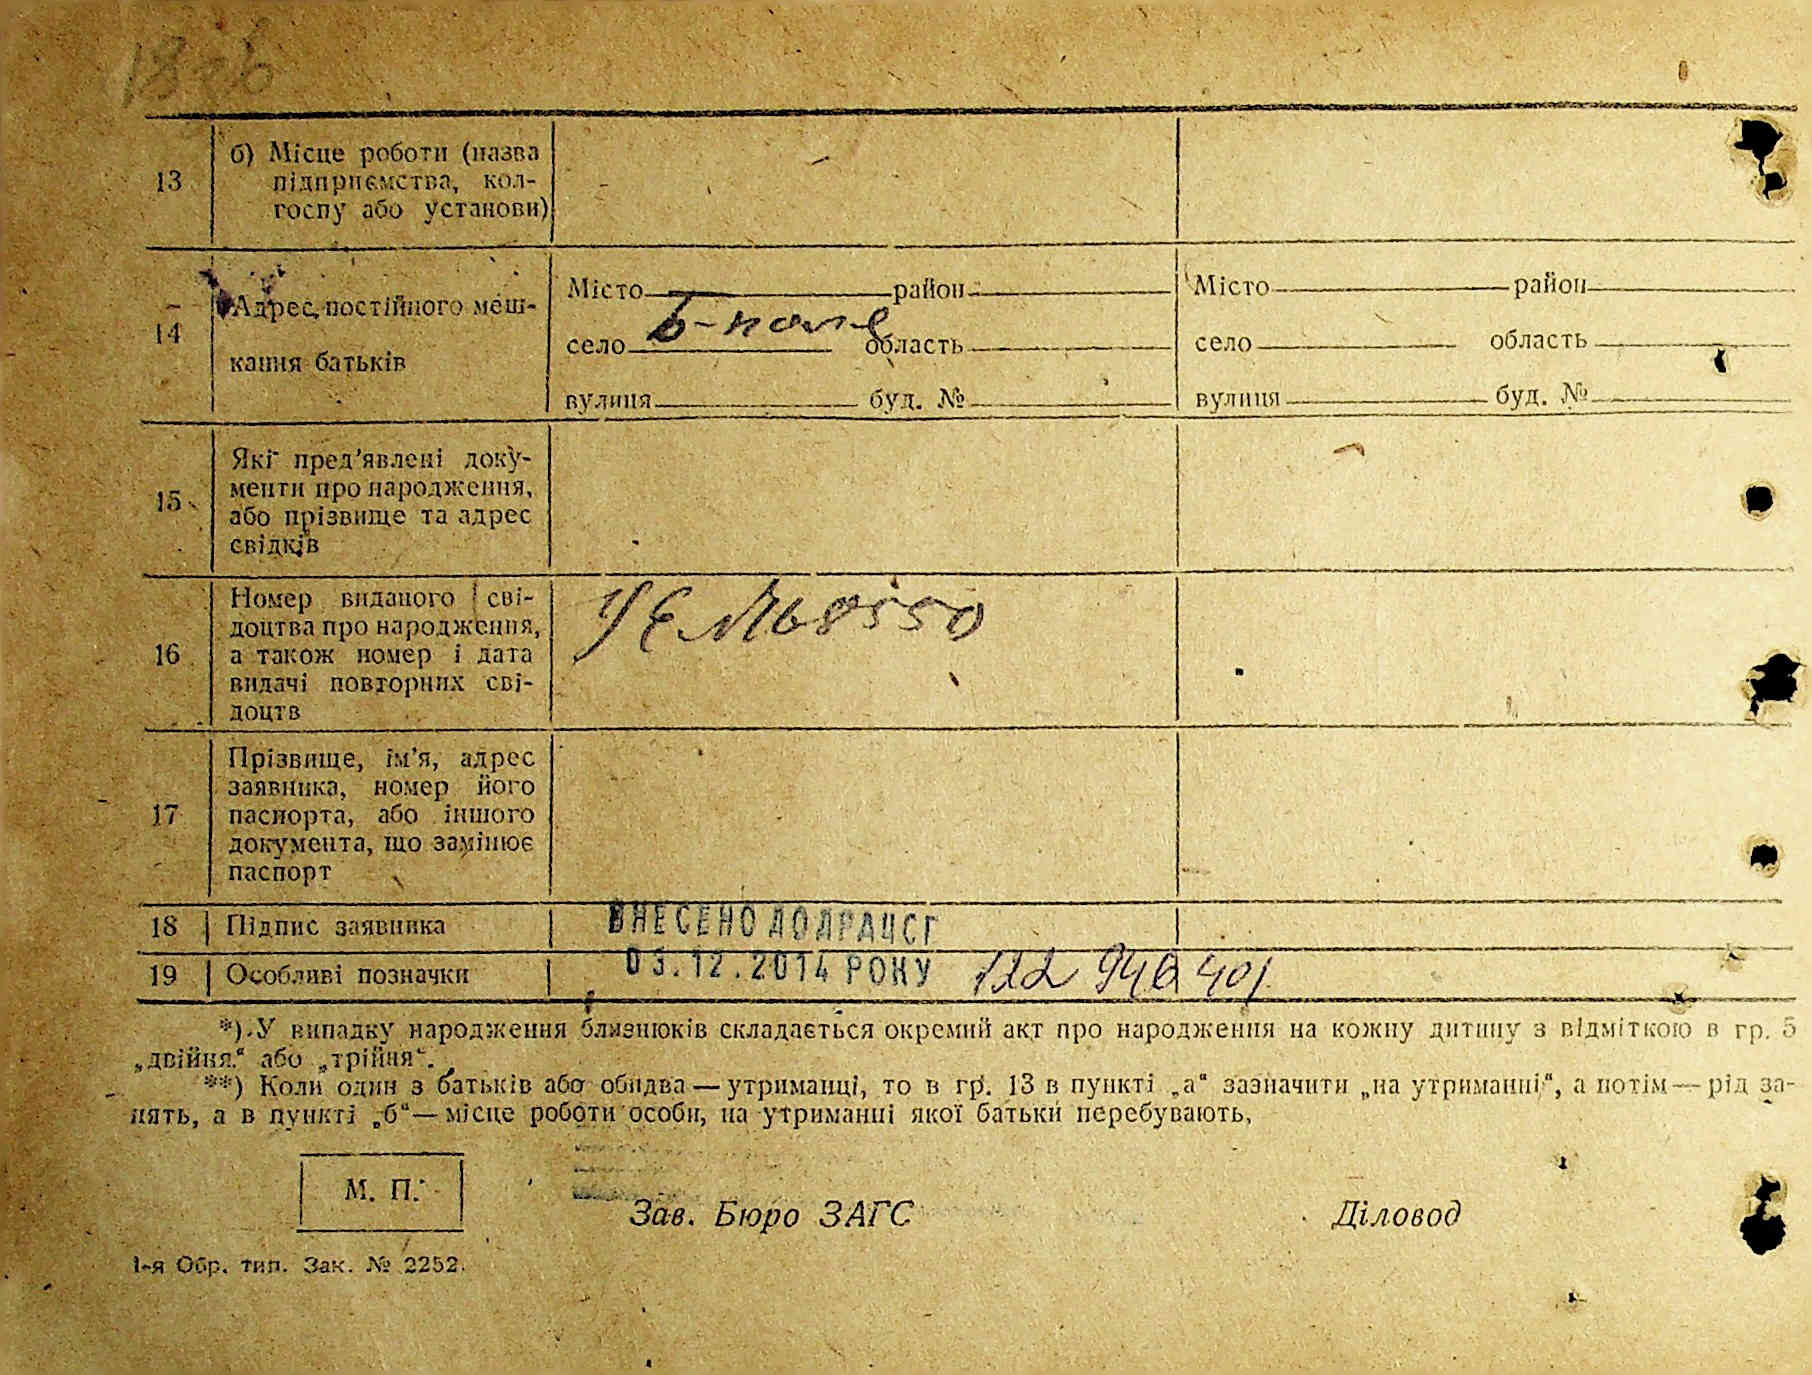 13
б) Місце роботи (назва
підприємства, кол-
госпу або установи)
14
Адрес постійного меш-
кання батьків
Місто район
село Б-поле область
вулиця буд. №
Місто район
село область
вулиця буд. №
15
Які пред'явлені доку-
менти про народження,
або прізвище та адрес
свідків
16
Номер виданого сві-
доцтва про народження,
а також номер і дата
видачі повторних сві-
доцтв
№ 68550
17
Прізвище, ім'я, адрес
заявника, номер його
паспорта, або іншого
документа, що замінює
паспорт
18 Підпис заявника
ВНЕСЕНО ДО ДРАЦСГ
19 Особливі позначки
03.12.2014 РОКУ 122 946 401
*) У випадку народження близнюків складається окремий акт про народження на кожну дитину з відміткою в гр. 5
„двійня“ або „трійня“.
**) Коли один з батьків або обидва — утриманці, то в гр. 13 в пункті „а“ зазначити „на утриманні“, а потім — рід за-
нять, а в пункті „б“ — місце роботи особи, на утриманні якої батьки перебувають,
М. П.
Зав. Бюро ЗАГС
Діловод
1-я Обр. тип. Зак. № 2252.